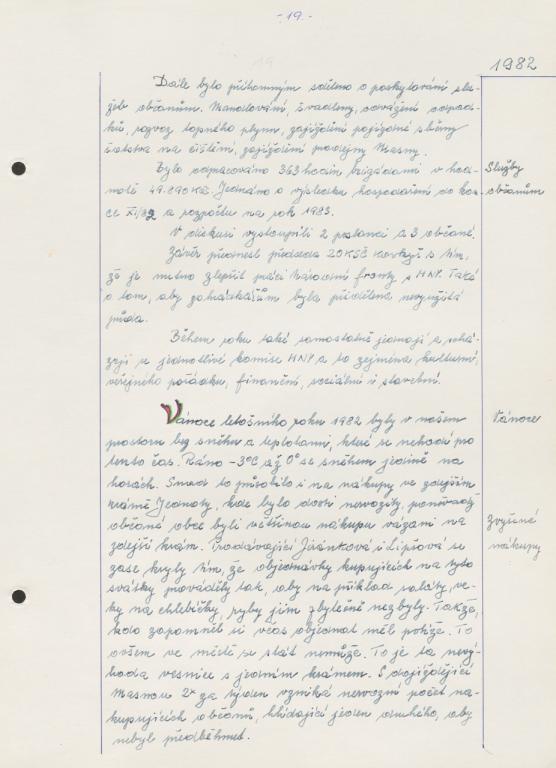 - 19. -
1982
Dále bylo přítomným sděleno o poskytování slu-
žeb občanům. Mandlování, švadleny, odvážení odpad-
ků, rozvoz topného plynu, zajíždění pojízdné sběrny
šatstva na čištění, zajíždění prodejny Masny.
Bylo odpracováno 363 hodin brigádami v hod-
notě 49.890 Kčs. Jednáno o výsledku hospodaření do kon-
ce XI/82 a rozpočtu na rok 1983.
Služby
občanům
V diskusi vystoupili 2 poslanci a 3 občané.
Závěr přednesl předseda ZO KSČ s tím,
že je nutno zlepšit práci Národní fronty s MNV. Také
o tom, aby zahrádkářům byla přidělena nevyužitá
půda.
Během roku také samostatně jednají a schá-
zejí se jednotlivé komise MNV a to zejména kulturní,
veřejného pořádku, finanční, sociální i stavební.
Vánoce letošního roku 1982 byly v našem
prostoru bez sněhu a teplotami, které se nehodí pro
tento čas. Ráno -3°C až 0° se sněhem jedině na
horách. Snad to působilo i na nákupy ve zdejším
krámě Jednoty, kde bylo dosti nervozity, poněvadž
občané obce byli většinou nákupu vázáni na
zdejší krám. Prodávající Jiránková i Lipšová se
zase kryly tím, že objednávky kupujících na tyto
svátky prováděly tak, aby na příklad saláty, ve-
ky na chlebíčky, ryby jim zbytečně nezbyly. Takže,
kdo zapomněl si včas objednat měl potíže. To
ovšem ve městě se stát nemůže. To je ta nevý-
hoda vesnice s jedním krámem. S dojíždějící
Masnou 2x za týden vzniká nervozní počet na-
kupujících občanů, hlídající jeden druhého, aby
nebyl předběhnut.
Vánoce
Zvýšené
nákupy